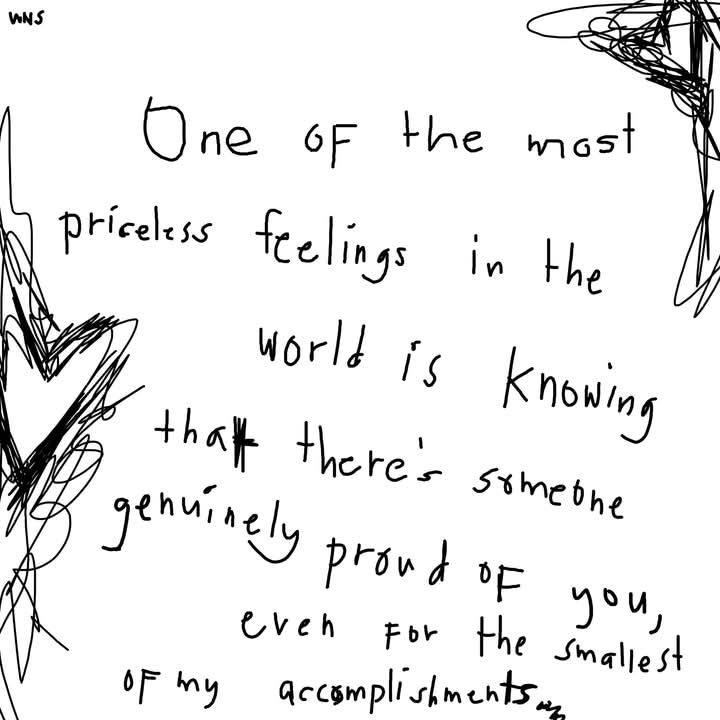 WNS
One of the most
priceless feelings in the
world is knowing
that there's someone
genuinely proud of you,
even for the smallest
of my accomplishments